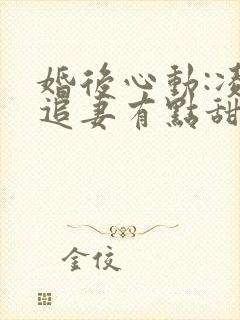 婚後心動:凌
追妻有點甜
金佼